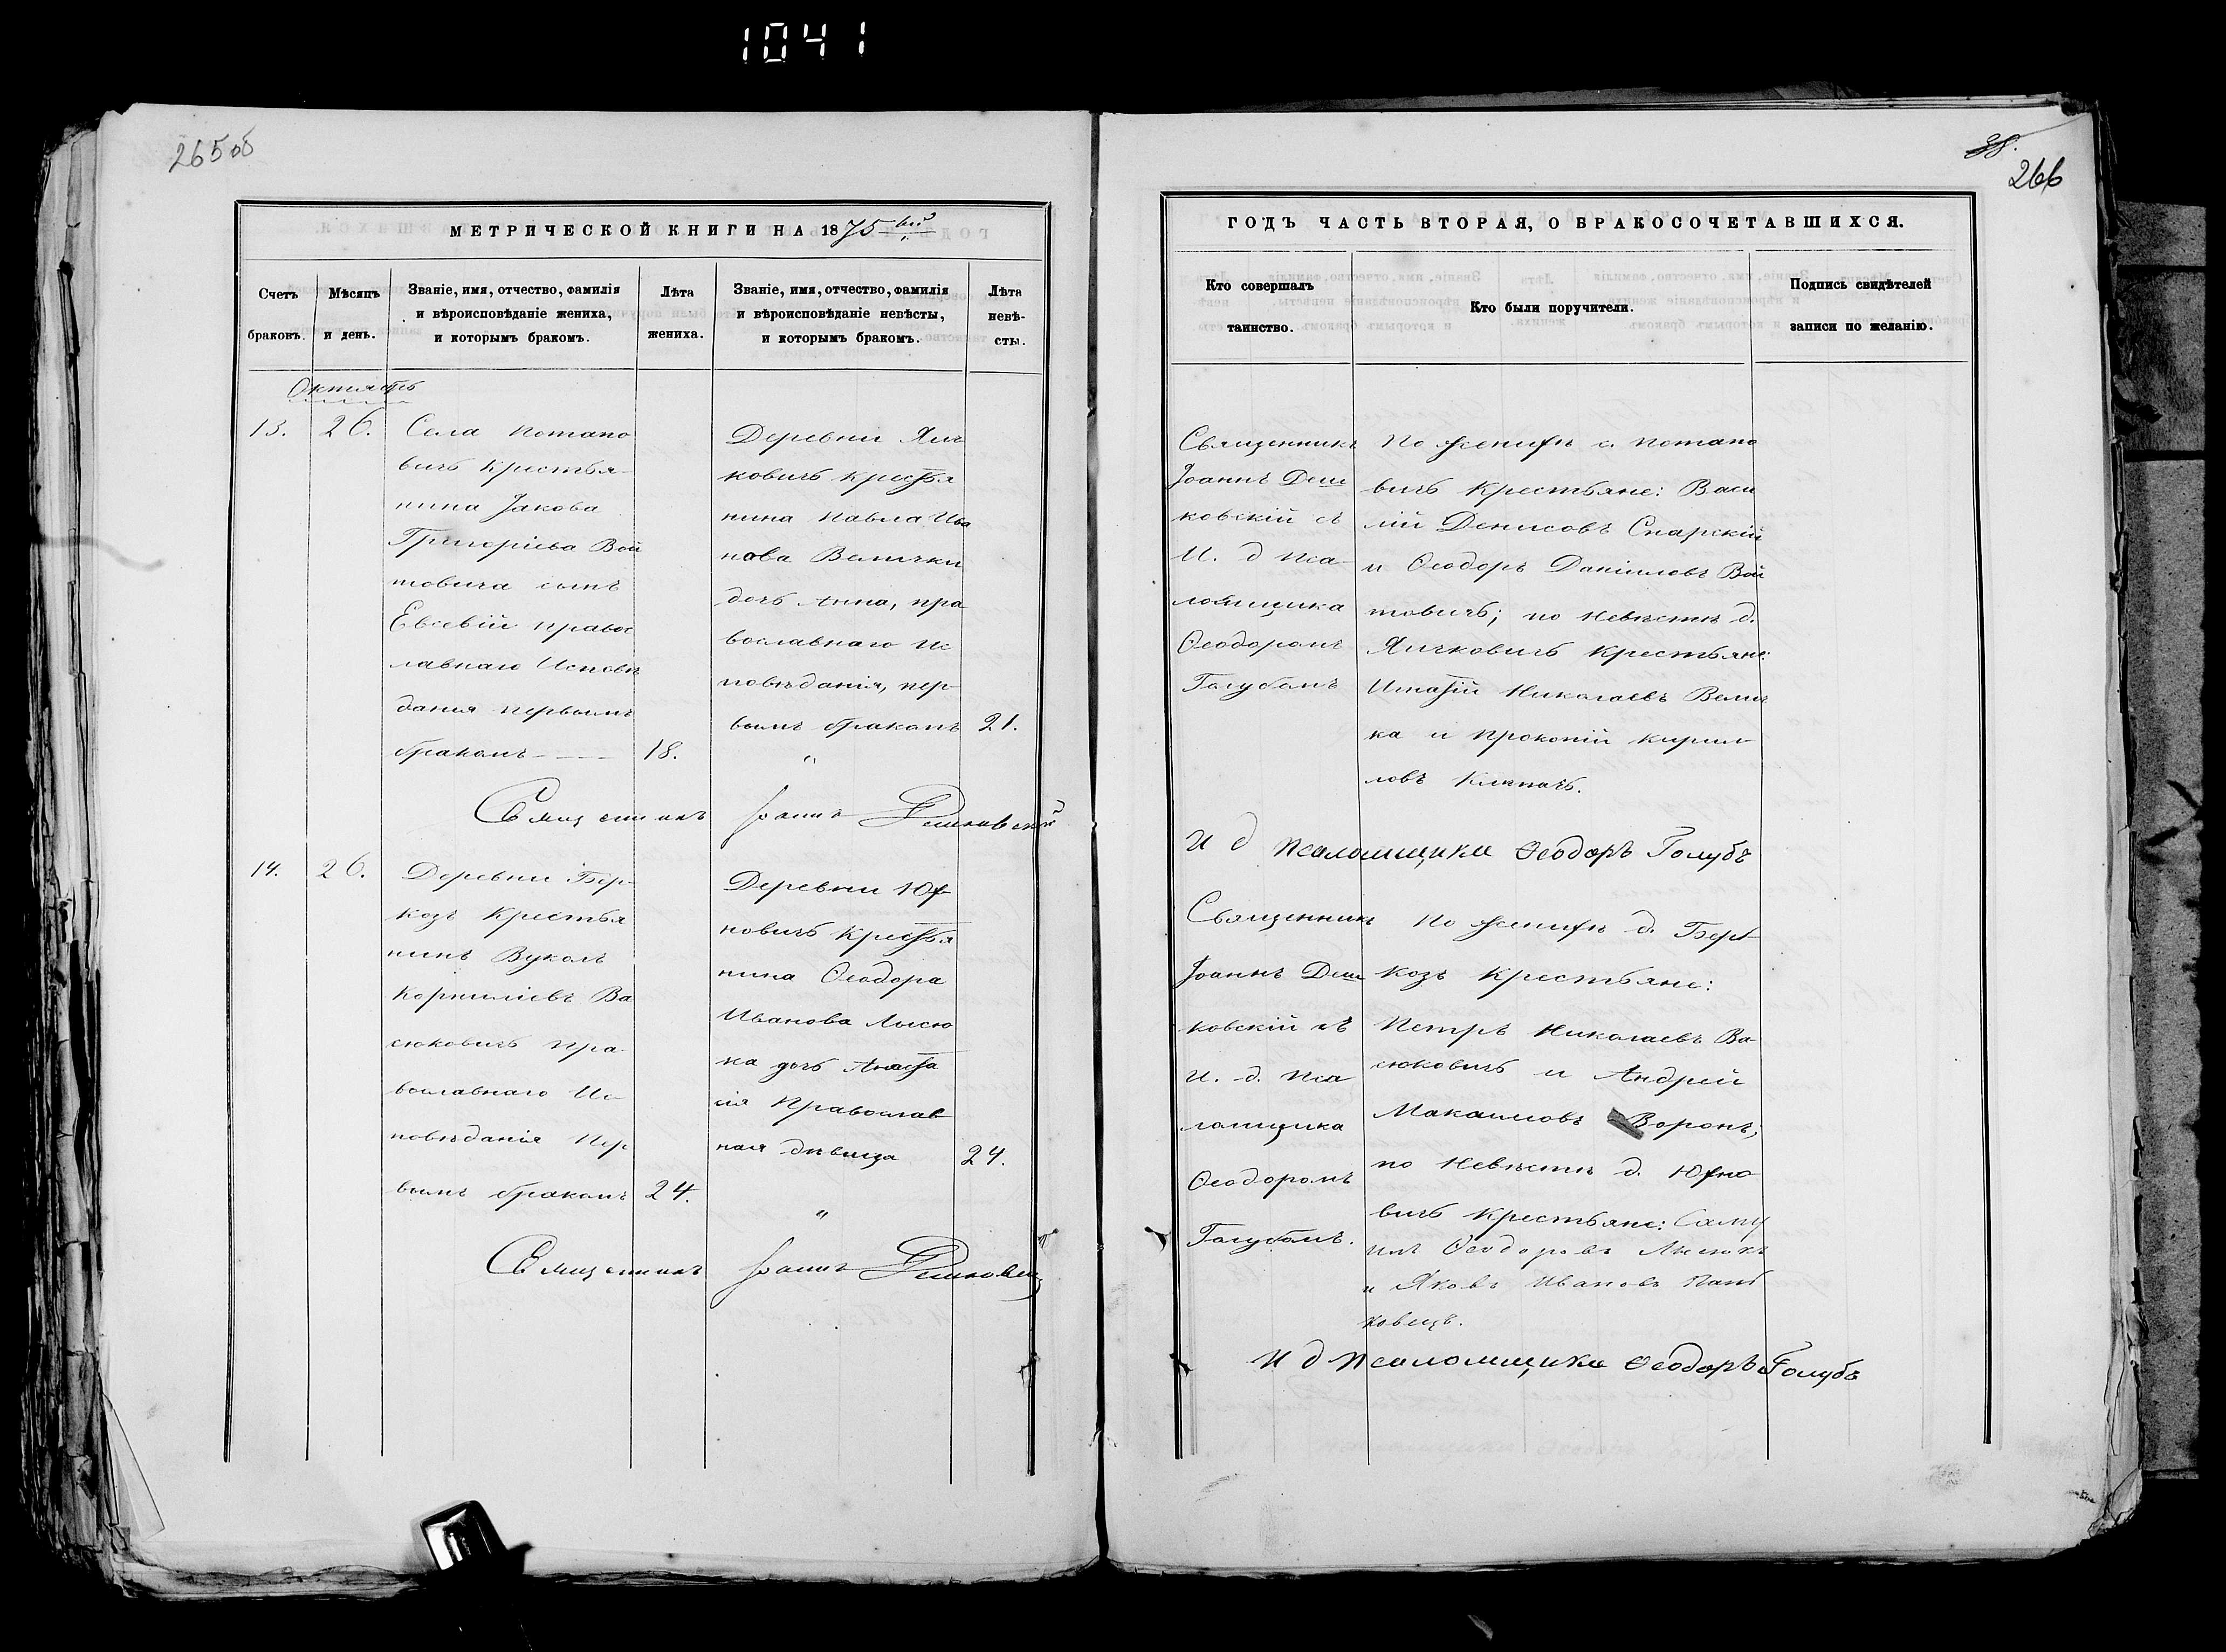 1041
265 об
МЕТРИЧЕСКОЙ КНИГИ НА 1875 ый
Счетъ браковъ.
Мѣсяцъ и день.
Званіе, имя, отчество, фамилія и вѣроисповѣданіе жениха, и которымъ бракомъ.
Лѣта жениха.
Званіе, имя, отчество, фамилія и вѣроисповѣданіе невѣсты, и которымъ бракомъ.
Лѣта невѣ-
сты.
Октябрь
13.
26.
Села Потапо
вичъ Крестья-
нина Јакова
Григоріева Вой
товича сынъ
Евсевій правос
лавнаго Исповѣ
данія первымъ
бракомъ
18.
Деревни Лич
ковичъ крестья
нина Павла Ива
нова Велички
дочь Анна, пра
вославнаго Ис
повѣданія, пер-
вымъ бракомъ
21.
"
Священникъ Іоаннъ Дешковскій
14.
26.
Деревни Бер-
козъ Крестья
нинъ Вуколъ
Корниліевъ Ва
сюковичъ пра-
вославнаго Ис-
повѣданія Пер
вымъ бракомъ
24.
Деревни Юх
новичъ Крестья
нина Ѳеодора
Иванова Лысю
ка дочь Анаста
сія Православ
ная дѣвица
24.
"
Священникъ Іоаннъ Дешковскій
38.
266
ГОДЪ ЧАСТЬ ВТОРАЯ, О БРАКОСОЧЕТАВШИХСЯ.
Кто совершалъ таинство.
Кто были поручители.
Подпись свидѣтелей записи по желанію.
Священникъ
Јоаннъ Деш
ковскій съ
И. д Пса-
ломщика
Ѳеодоромъ
Голубомъ
По женихѣ с. Потапо
вичъ Крестьяне: Васи
лій Денисовъ Снарскій
и Ѳеодоръ Даніиловъ Вой
товичъ; по невѣстѣ д.
Личковичъ Крестьяне:
Игнатій Николаевъ Велич
ка и Прокопій Кирил
ловъ
И д Псаломщика Ѳеодоръ Голубъ
Священникъ
Јоаннъ Деш
ковскій съ
И. д. Пса
ломщика
Ѳеодоромъ
Голубомъ.
По женихѣ д. Бер-
козъ Крестьяне:
Петръ Николаевъ Ва-
сюковичъ и Андрей
Максимовъ Воронъ;
по Невѣстѣ д. Юхно
вичъ Крестьяне: Саму
илъ Ѳеодоровъ Лысюкъ
и Яковъ Ивановъ Пань
ковецъ.
И д Псаломщика Ѳеодоръ Голубъ